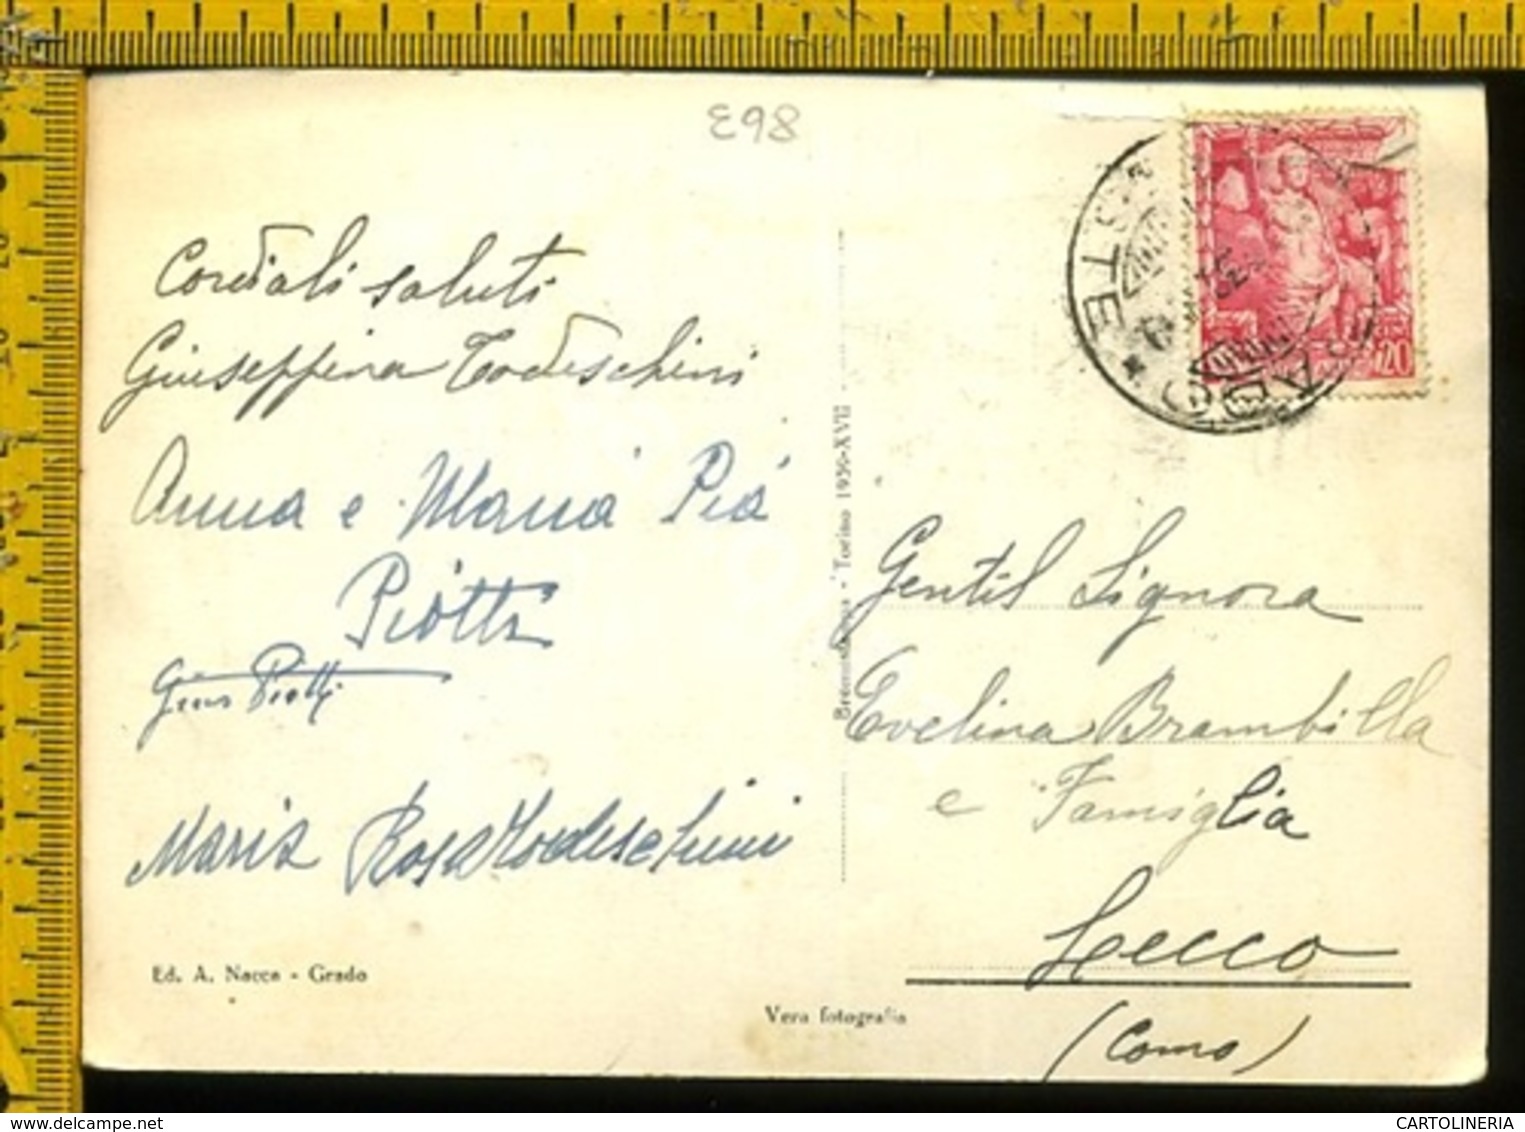 E98
Cordiali saluti
Giuseppina Todeschini
Anna e Maria Pia
Piotti
Piotti
Maria Rosa Todeschini
Ed. A. Nacca - Grado
Vera fotografia
- Torino 1939-XVII
20
Gentil Signora
Evelina Brambilla
e Famiglia
Lecco
(Como)
www.delcampe.net
CARTOLINERIA